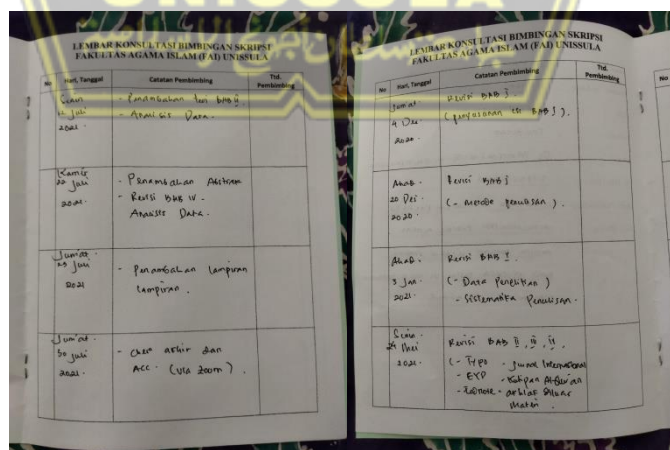 UNISSULA
LEMBAR KONSULTASI BIMBINGAN SKRIPSI
FAKULTAS AGAMA ISLAM (FAI) UNISSULA
No Hari, Tanggal Catatan Pembimbing Ttd. Pembimbing
Senin
12 Juli
2021.
- Penambahan BAB II
- Analisis Data.
Kamis
Juli
2021.
- Penambahan Abstrak
- Revisi BAB IV -
Analisis Data.
Jum'at
23 Juli
2021
- Penambahan lampiran
lampiran.
Jum'at.
30 Juli
2021.
- Chek akhir dan
ACC. (via zoom).
LEMBAR KONSULTASI BIMBINGAN SKRIPSI
FAKULTAS AGAMA ISLAM (FAI) UNISSULA
No Hari, Tanggal Catatan Pembimbing Ttd. Pembimbing
Jumat
4 Des
2020.
Revisi BAB I
(penyusunan isi BAB I).
Ahad.
20 Des
2020.
Revisi BAB I
(- metode penulisan).
Ahad.
3 Jan.
2021.
Revisi BAB I.
(- Data Penelitian)
- Sistematika Penulisan.
Senin.
24 Mei
2021.
Revisi BAB II, III, IV
(- Typo - Jurnal Internasional
- EYD - Kutipan Al-Qur'an
- Footnote - akhlak diluar
Materi.
No